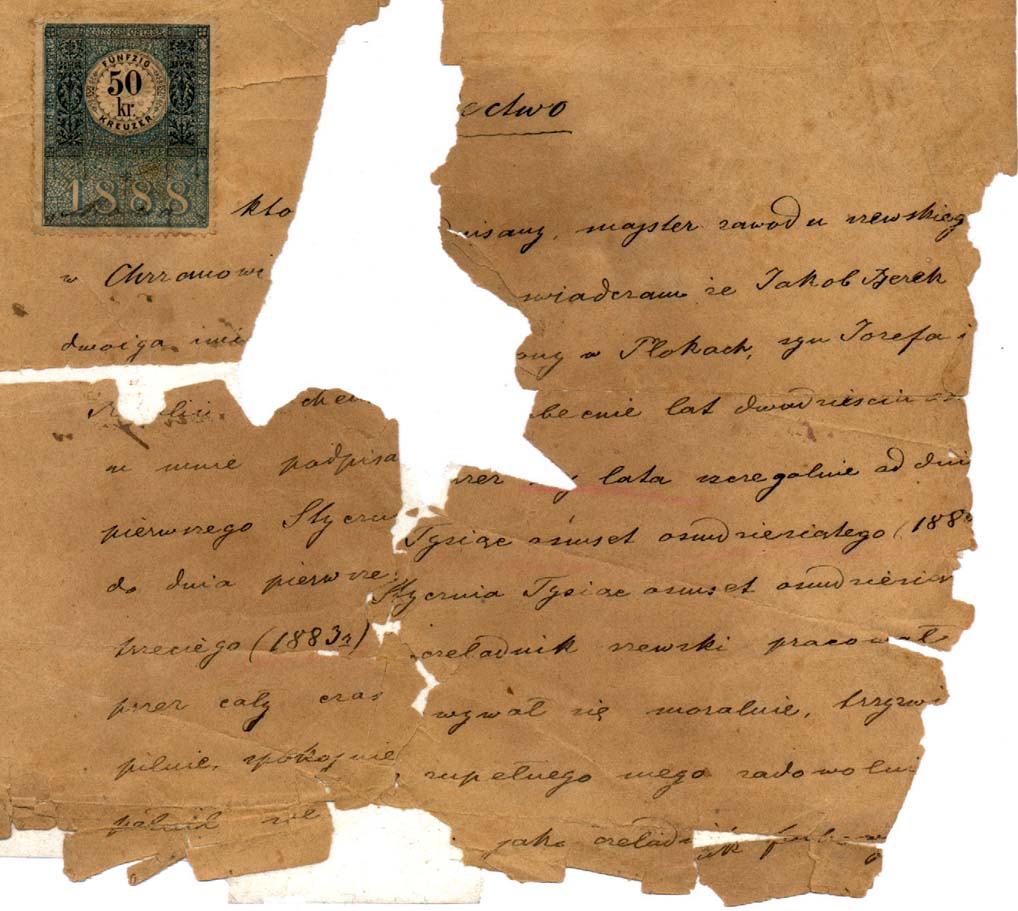 FÜNFZIG
50
kr.
KREUZER
1888
ectwo
kto isany, majster zawodu szewskieg
w Chrzanowi swiadczam ze Jakob
dwoiga imi ony w Płokach, syn Jozefa i
chem becnie lat dwadziescia
u mnie podpisa rzez lata szczegolnie od dni
pierwszego Stycz Tysiąc osmset osmdziesiatego (188
do dnia pierwsze Stycznia Tysiąc osmset osmdziesia
trzeciego (1883r) czeladnik szewski pracował
przez cały czas wywał się moralnie, trzyzwi
pilnie, spokojnie zupełnego mego zadowolni
jako czeladnik